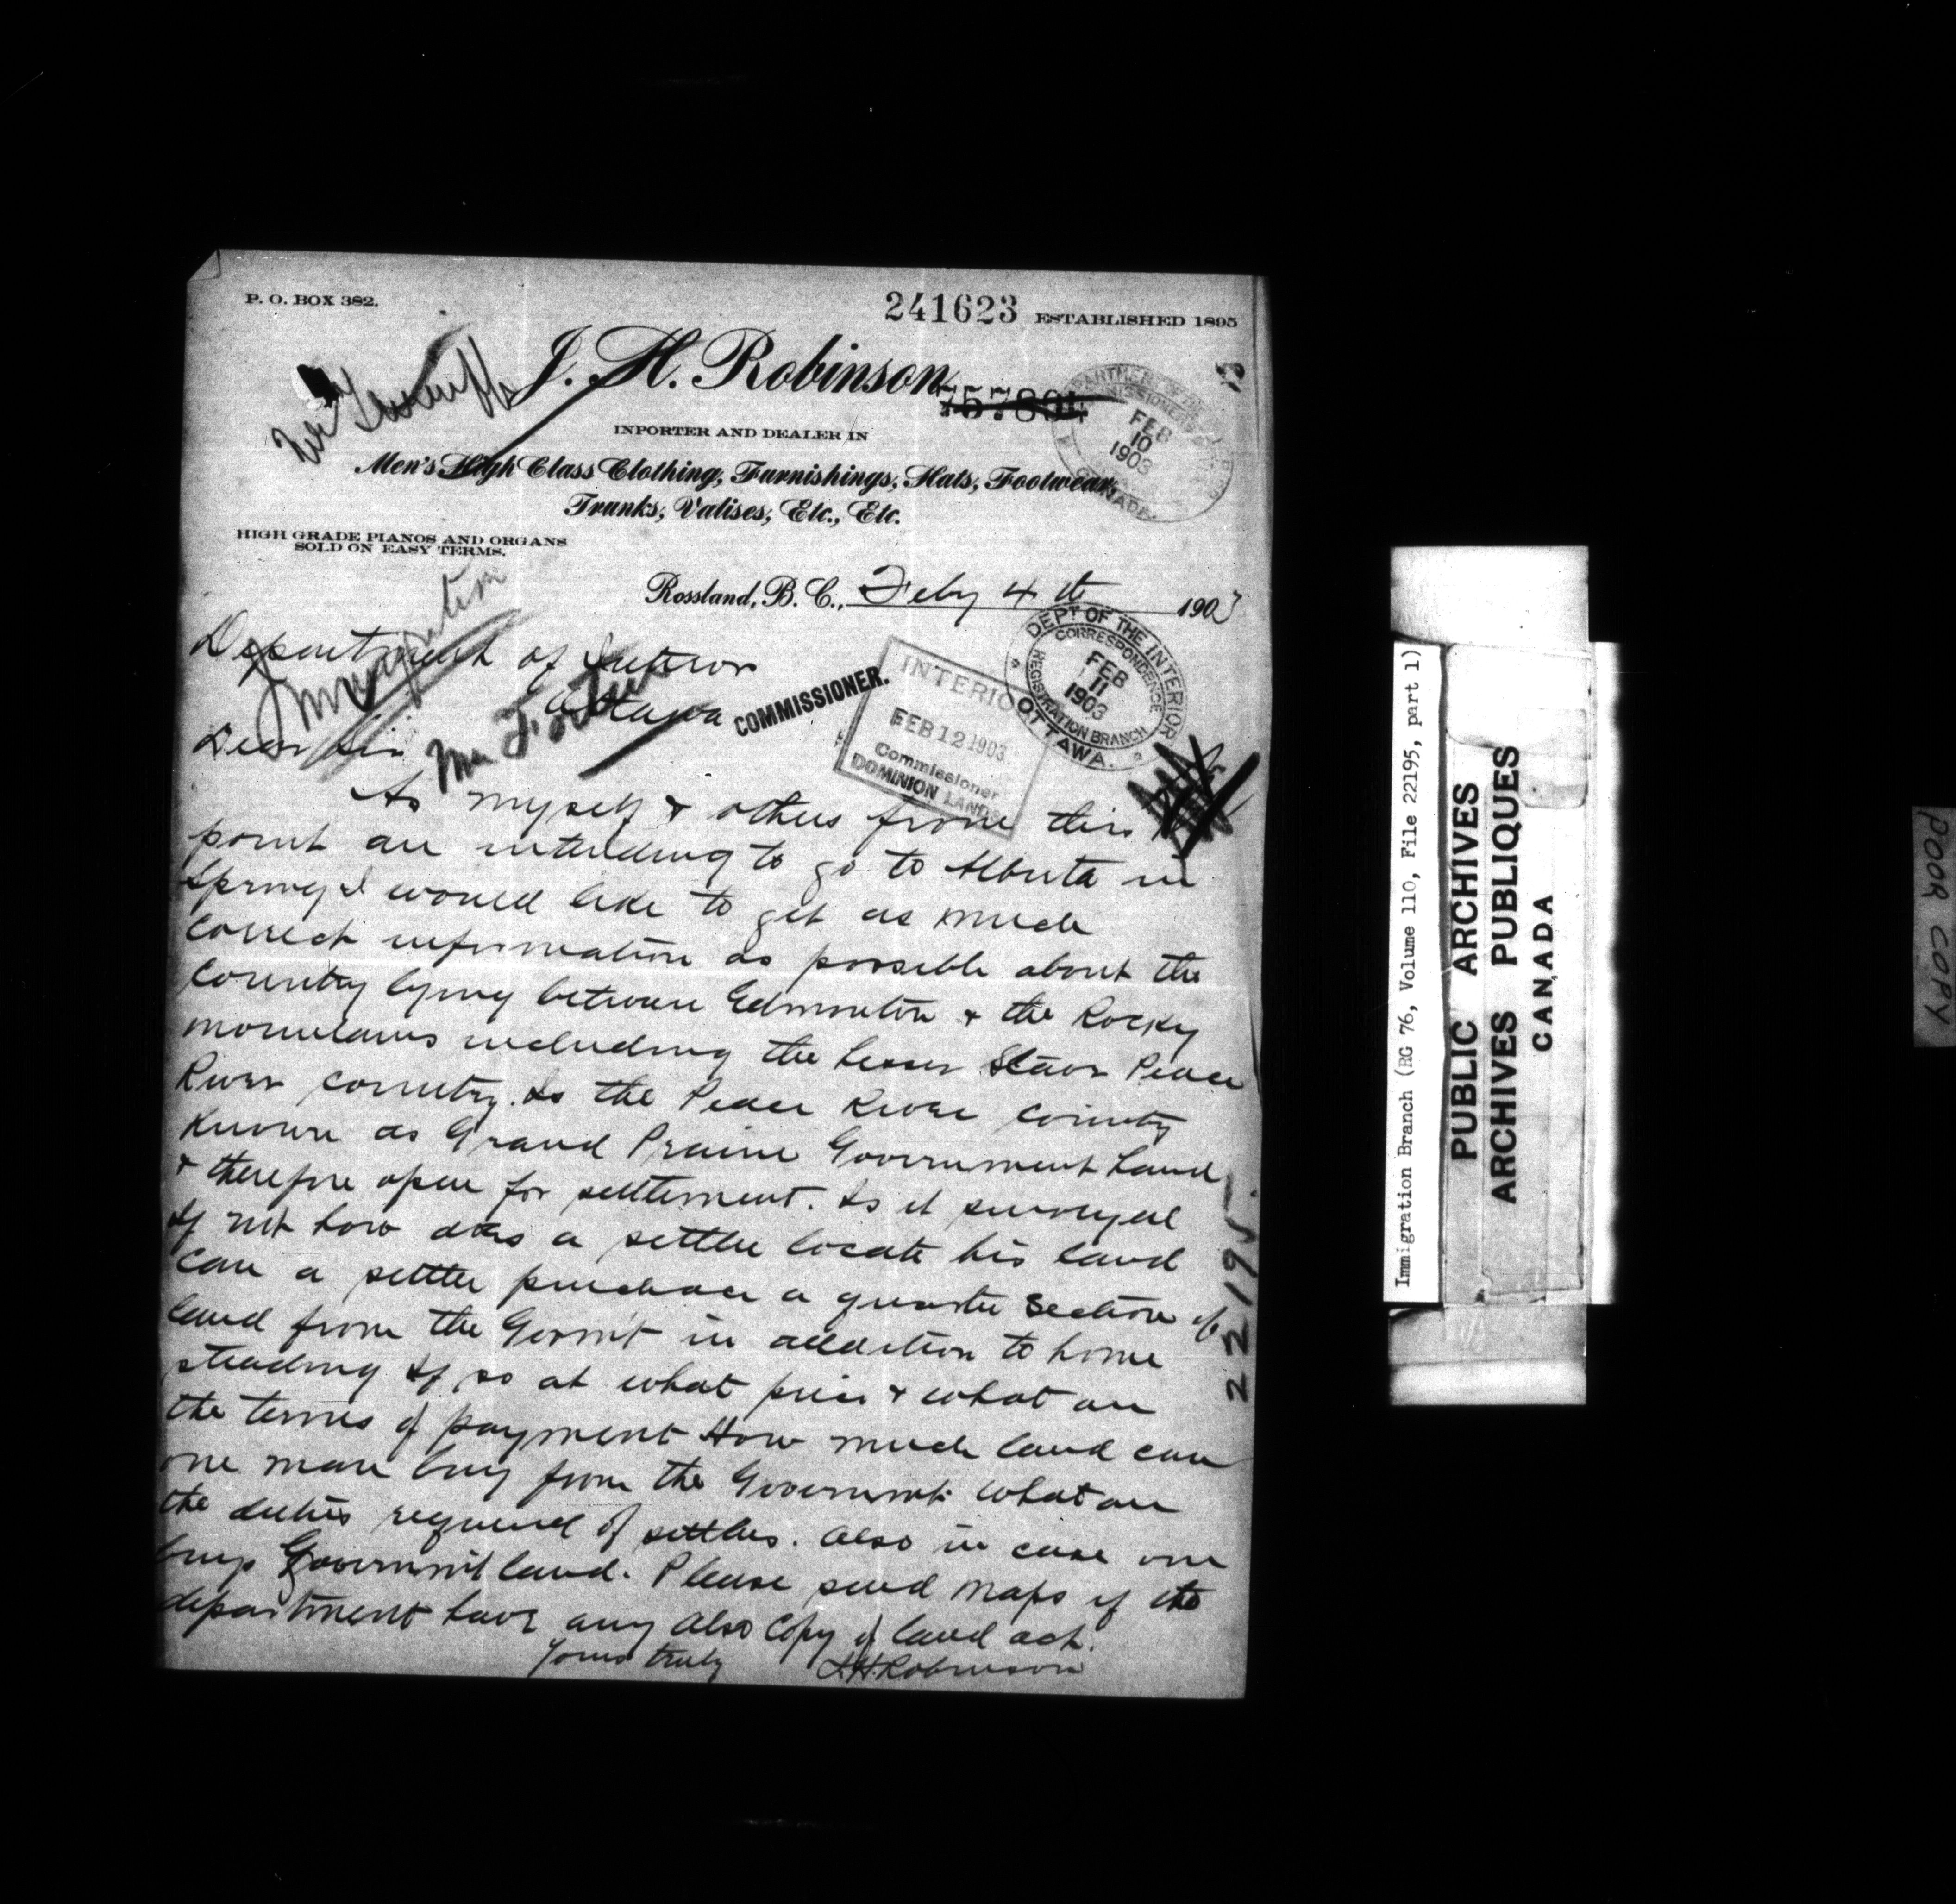 P. O. BOX 382.
241623
ESTABLISHED 1895
J. H. Robinson
INPORTER AND DEALER IN
Men's High Class Clothing, Furnishings, Hats, Footwear,
Trunks, Valises, Etc., Etc.
HIGH GRADE PIANOS AND ORGANS
SOLD ON EASY TERMS.
FEB
10
1903
CANADA
Rossland, B. C., Feby 4th 1903
Department of Interior
Ottawa
Immigration
COMMISSIONER.
INTERIOR
FEB 12 1903
Commissioner
DOMINION LANDS
DEPT OF THE INTERIOR
CORRESPONDENCE
REGISTRATION BRANCH
FEB
11
1903
OTTAWA.
Dear Sir
As myself & others from this
point are intending to go to Alberta in
Spring I would like to get as much
correct information as possible about the
country lying between Edmonton & the Rocky
mountains including the Lesser Slave Peace
River country. Is the Peace River country
known as Grand Prairie Government Land
& therefore open for settlement. Is it surveyed
If not how does a settler locate his land
Can a settler purchase a quarter section of
land from the Govnt in addition to home
steading If so at what price & what are
the terms of payment How much land can
one man buy from the Government What are
the duties required of settlers. also in case one
buys Government land. Please send maps if the
department have any also copy of land act.
Yours truly J.H. Robinson
22195
Immigration Branch (RG 76, Volume 110, File 22195, part 1)
PUBLIC ARCHIVES
ARCHIVES PUBLIQUES
CANADA
POOR COPY